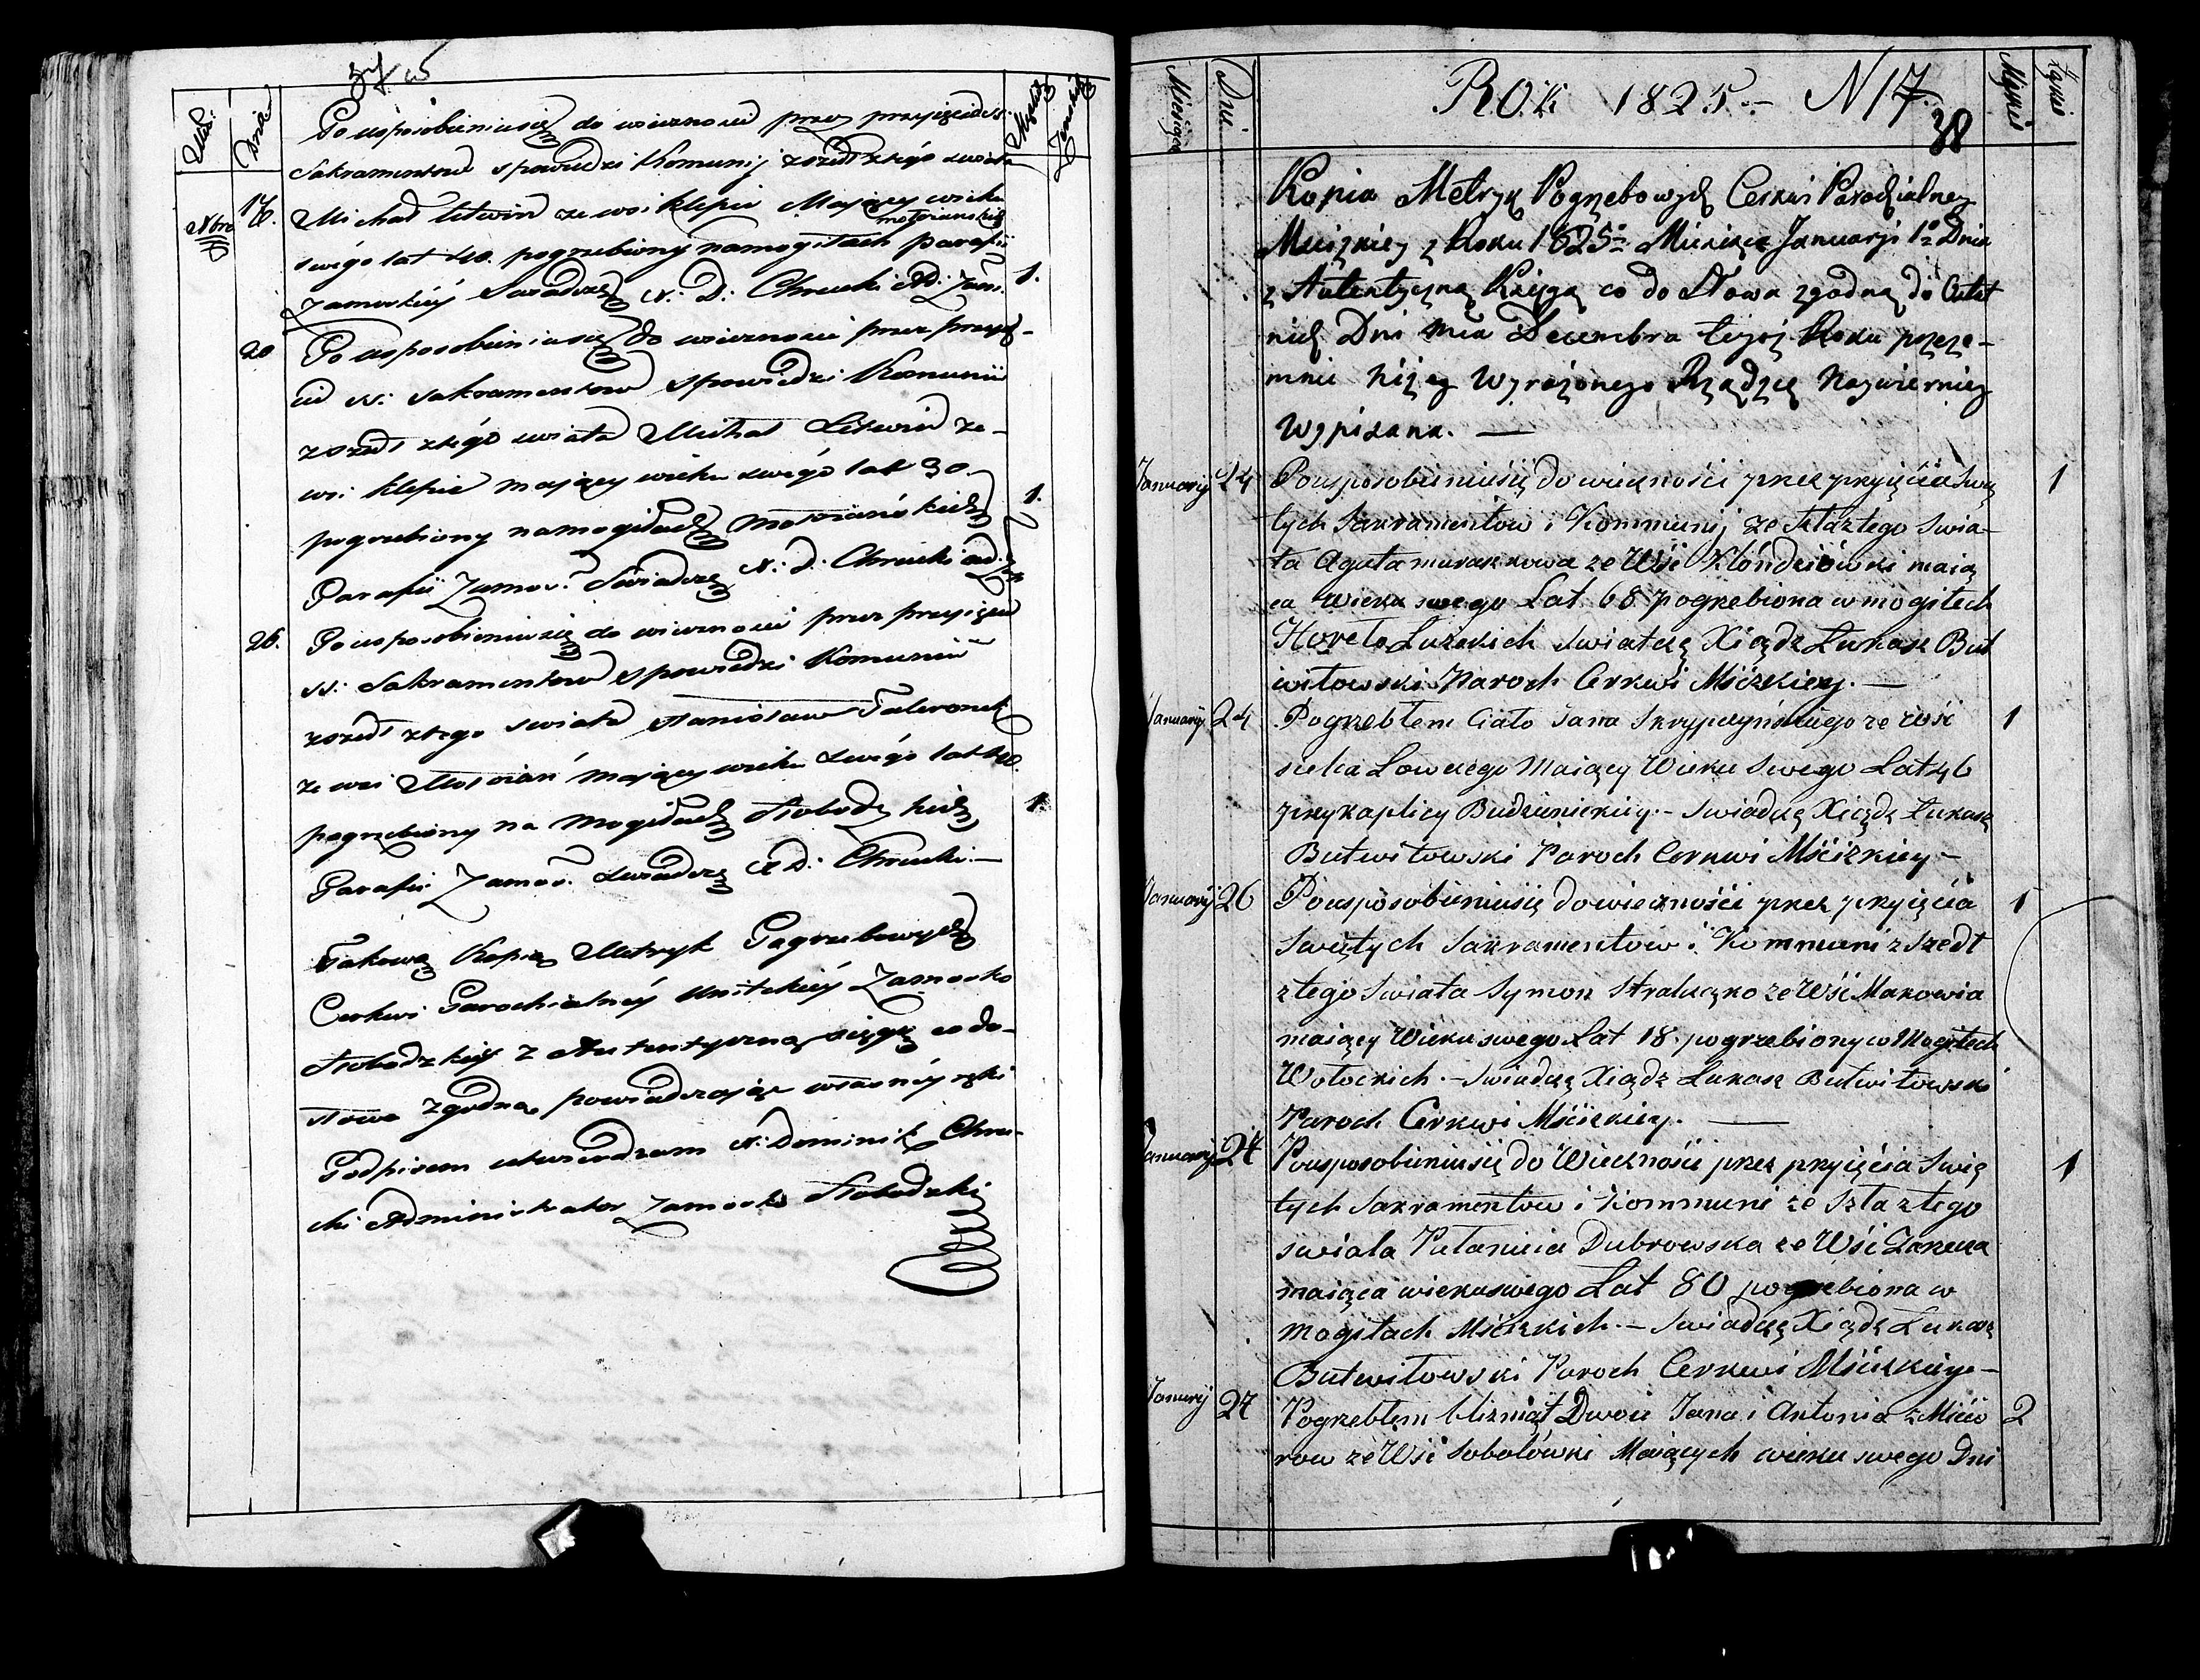 Dnia
Po usposobieniu się do wiecznosci przez przyięcie ss.
Sakramentow spowiedzi Komunij zszedł z tégo swiata
17. Michał Litwin ze wsi Klepie Maiący wieku
swégo lat 40. pogrzebiony na mogiłach parafii
Zamoskiéy Swiadczę X. D. Chrucki Ad. Zam. 1.
20 Po usposobieniu się do wiecznosci przez przyię-
cie ss. Sakramentow spowiedzi Komunii
zszedł z tégo swiata Michał Litwin ze
wsi Klepie maiący wieku swégo lat 30.
pogrzebiony na mogiłach 1.
Parafii Zamos. Swiadczę X. D. Chrucki ad.
26. Po usposobieniu się do wiecznosci przez przyięcie
ss. Sakramentow spowiedzi Komunii
zszedł z tego swiata Stanisław
ze wsi maiący wieku swégo lat
pogrzebiony na mogiłach Słobodzkich 1.
Parafii Zamos. Swiadczę X D. Chrucki. —
Takową Kopią Metryk Pogrzebowych
Cerkwi Parochialnéy Unitskiéy Zamosko
Słobodzkiéy z Autentyczną xięgą co do
słowa zgodną poswiadczając własnéy ręki
Podpisem utwierdzam X. Dominik Chru-
cki Administrator Zamosko Słobodzki
Miesiąca Dni ROK 1825.— N 17. Męskiś Żęńś
38
Kopia Metryk Pogrzebowych Cerkwi Parochialney
Msciżkiey z Roku 1825o Miesiąca Januaryi 1o Dnia
z Autentyczną Księgą co do Słowa zgodną do Ostat
nich Dni Mca Decembra tegoż Roku przeze-
mnie niżey wyrażonego Rządzcę Naywierniey
Wypisana. —
Januarij 24 Po usposobieniu się do wieczności przez przyięcia Swię 1
tych Sakramentow i Kommunij ze szła z tego Swia-
ta Agata Muraszkowa ze Wsi Kłóndziówki maią
ca wieku swego Lat 68 pogrzebiona w mogiłech
Horeło Łużskich Swiatczę Xiądz Łukasz But
witowski Paroch Cerkwi Mściżkiey. —
Januarij 24 Pogrzebłem Ciało Jana Skrypczyńskiego ze wsi 1
sielca Łowczego Maiący Wieku Swego Lat 46
przy kaplicy Budzienickiey. — Swiadczę Xiądz Łukasz
Butwitowski Paroch Cerkwi Mściżkiey —
Januarij 26 Po usposobieniu się do wieczności przez przyięcia 1
Swiętych Sakramentow i Kommuni z szedł
z tego Swiata Symon Straluczko ze Wsi Makowia
maiący Wieku swego Lat 18. pogrzebiony w Mogiłech
Wołockich. — Swiadczę Xiądz Łukasz Butwitowski
Paroch Cerkwi Mściżkiey. —
Januarij 27 Po usposobieniu się do Wieczności przez przyięcia Swię 1
tych Sakramentow i Kommuni ze szła z tego
swiata Pałanieia Dubrowska ze Wsi
maiąca wieku swego Lat 80 pogrzebiona w
Mogiłach Mściżkich. — Swiadczę Xiądz Łukasz
Butwitowski Paroch Cerkwi Mściżkiey —
Januarij 27 Pogrzebłem blizniąt Dwoie Jana i Antonia 2
row ze Wsi Sobolówki Maiących wieku swego Dni